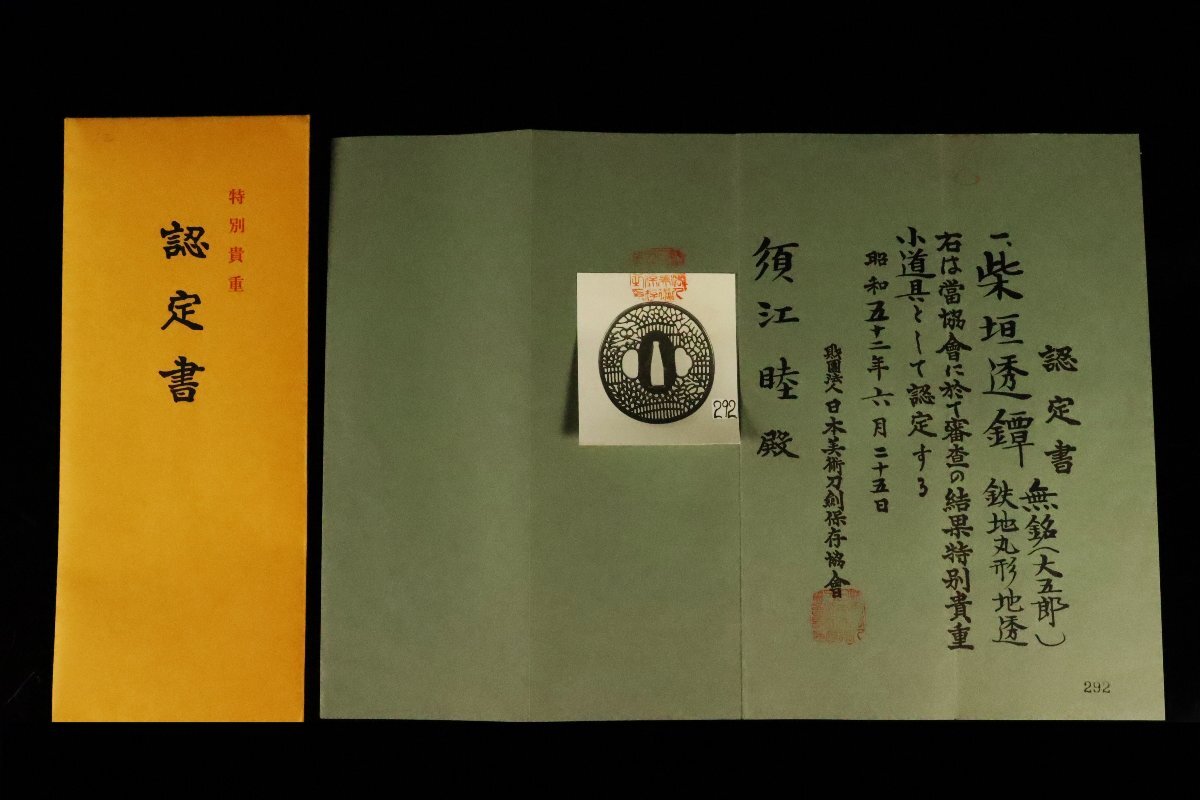 特別貴重
認定書
認定書
一、柴垣透鐔
無銘(大五郎)
鉄地丸形地透
右は當協會に於て審査の結果特別貴重
小道具として認定する
昭和五十二年六月二十五日
財團法人日本美術刀劍保存協會
須江睦殿
292
292